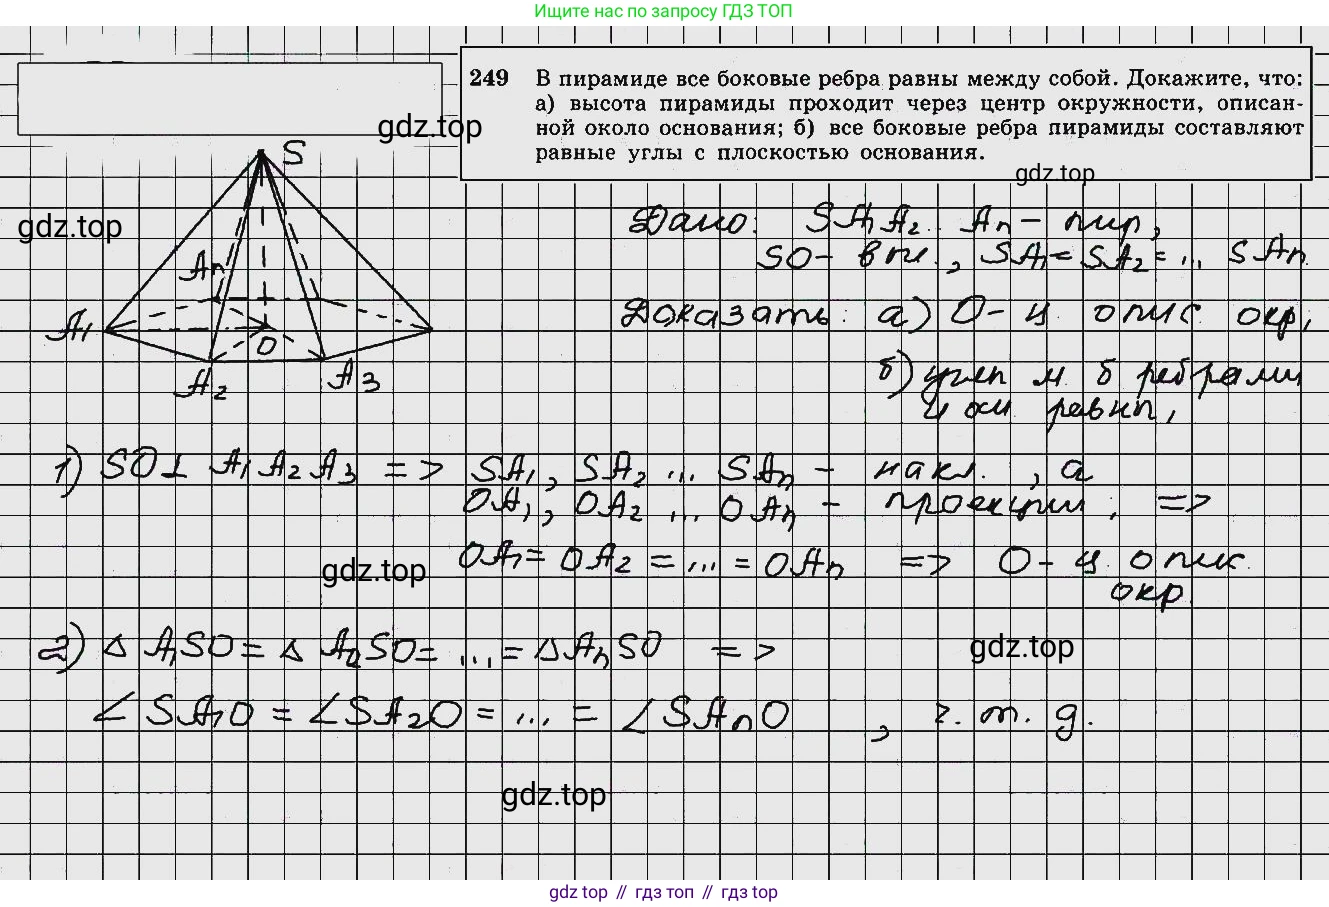 Ищите нас по запросу ГДЗ ТОП
249 В пирамиде все боковые ребра равны между собой. Докажите, что:
а) высота пирамиды проходит через центр окружности, описан-
ной около основания; б) все боковые ребра пирамиды составляют
равные углы с плоскостью основания.
gdz.top
gdz.top
gdz.top
S
An
A1
O
A2
A3
Дано: SA1A2... An - пир,
SO - выс., SA1 = SA2 = ... SAn
Доказать: а) O - ц опис окр,
б) углы м. б ребрами
и осн равны,
1) SO⊥ A1A2A3 => SA1, SA2 ... SAn - накл., а
OA1, OA2 ... OAn - проекции, =>
OA1 = OA2 = ... = OAn => O - ц. опис
окр.
gdz.top
2) △ A1SO = △ A2SO = ... = △AnSO =>
gdz.top
∠SA1O = ∠SA2O = ... = ∠SAnO, ч. т. д.
gdz.top
gdz top // гдз топ // gdz top